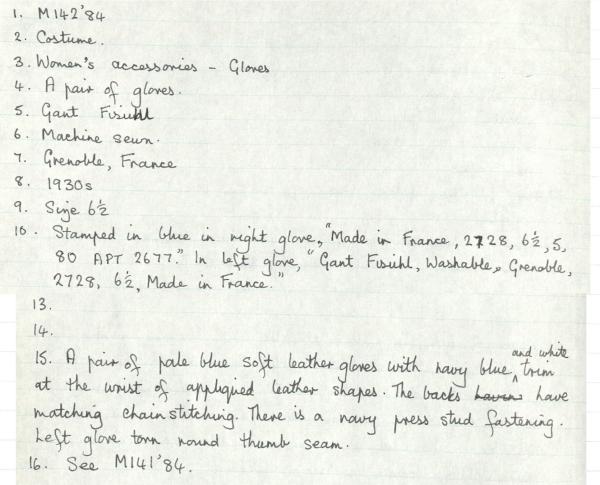 1. M142'84
2. Costume.
3. Women's accessories - Gloves
4. A pair of gloves.
5. Gant Fisuhl
6. Machine sewn.
7. Grenoble, France
8. 1930s
9. Size 6½
10. Stamped in blue in right glove, "Made in France, 2728, 6½, 5,
80 APT 2677." In left glove, "Gant Fisuhl, Washable, Grenoble,
2728, 6½, Made in France."
13.
14.
15. A pair of pale blue soft leather gloves with navy blue and white trim
at the wrist of appliqued leather shapes. The backs have
matching chain stitching. There is a navy press stud fastening.
Left glove torn round thumb seam.
16. See M141'84.